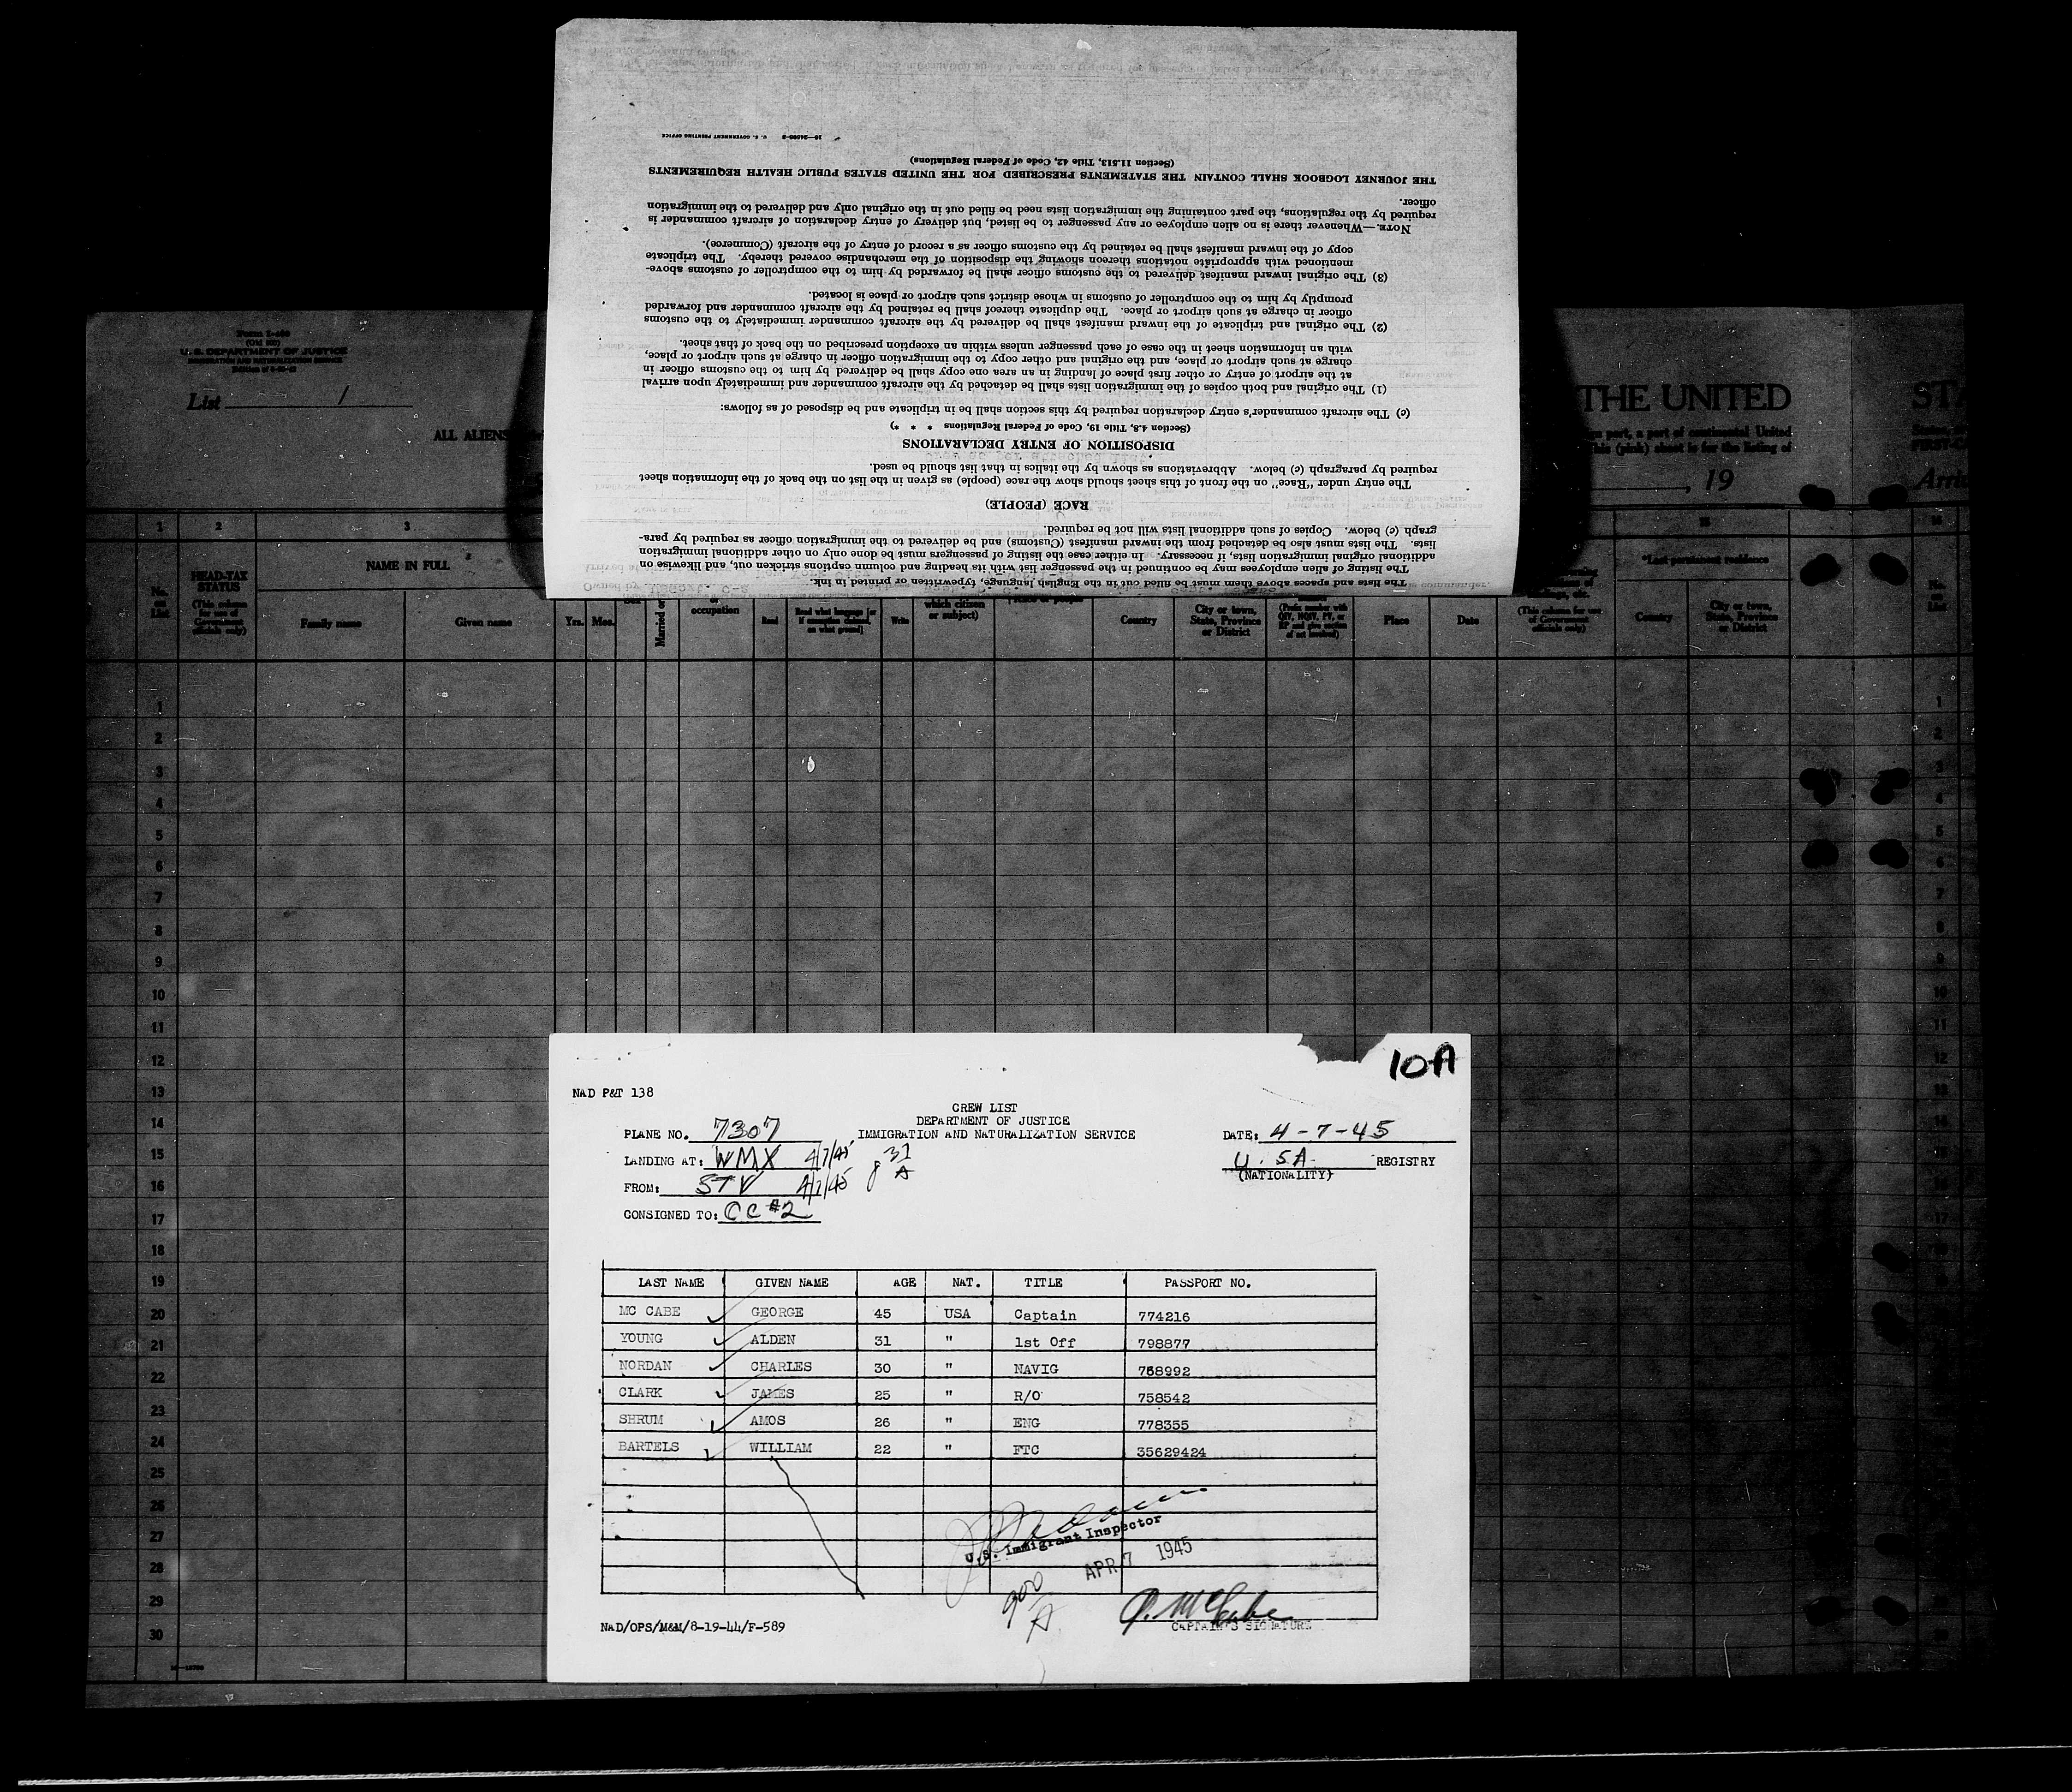 16—24598-2 U. S. GOVERNMENT PRINTING OFFICE
(Section 11.513, Title 42, Code of Federal Regulations)
THE JOURNEY LOGBOOK SHALL CONTAIN THE STATEMENTS PRESCRIBED FOR THE UNITED STATES PUBLIC HEALTH REQUIREMENTS
officer.
required by the regulations, the part containing the immigration lists need be filled out in the original only and delivered to the immigration
NOTE.—Whenever there is no alien employee or any passenger to be listed, but delivery of entry declaration of aircraft commander is
copy of the inward manifest shall be retained by the customs officer as a record of entry of the aircraft (Commerce).
mentioned with appropriate notations thereon showing the disposition of the merchandise covered thereby. The triplicate
(3) The original inward manifest delivered to the customs officer shall be forwarded by him to the comptroller of customs above-
promptly by him to the comptroller of customs in whose district such airport or place is located.
officer in charge at such airport or place. The duplicate thereof shall be retained by the aircraft commander and forwarded
(2) The original and triplicate of the inward manifest shall be delivered by the aircraft commander immediately to the customs
with an information sheet in the case of each passenger unless within an exception prescribed on the back of that sheet.
charge at such airport or place, and the original and other copy to the immigration officer in charge at such airport or place,
at the airport of entry or other first place of landing in an area one copy shall be delivered by him to the customs officer in
(1) The original and both copies of the immigration lists shall be detached by the aircraft commander and immediately upon arrival
(c) The aircraft commander's entry declaration required by this section shall be in triplicate and be disposed of as follows:
(Section 4.8, Title 19, Code of Federal Regulations * * *)
DISPOSITION OF ENTRY DECLARATIONS
required by paragraph (c) below. Abbreviations as shown by the italics in that list should be used.
The entry under "Race" on the front of this sheet should show the race (people) as given in the list on the back of the information sheet
RACE (PEOPLE)
graph (c) below. Copies of such additional lists will not be required.
lists. The lists must also be detached from the inward manifest (Customs) and be delivered to the immigration officer as required by para-
additional original immigration lists, if necessary. In either case the listing of passengers must be done only on other additional immigration
The listing of alien employees may be continued in the passenger list with its heading and column captions stricken out, and likewise on
The lists and spaces above them must be filled out in the English language, typewritten or printed in ink.
U. S. DEPARTMENT OF JUSTICE
IMMIGRATION AND NATURALIZATION SERVICE
List 1
ALL ALIENS
THE UNITED
part, a part of continental United
(pink) sheet is for the listing of
, 19
1 2 3
HEAD-TAX STATUS
(This column for use of Government officials only)
NAME IN FULL
*Last permanent residence
No. on List
Family name Given name Yrs. Mos. Married or
occupation
Read Read what language [or if exemption claimed, on what ground] Write
which citizen or subject)
Country City or town, State, Province or District
Place Date
(This column for use of Government officials only)
Country City or town, State, Province or District
No. on List
1 1
2 2
3 3
4 4
5 5
6 6
7 7
8 8
9 9
10 10
11 11
12 12
13 13
14 14
15 15
16 16
17 17
18
19
20
21
22
23
24
25
26
27
28
29
30
10A
NAD P&T 138
CREW LIST
DEPARTMENT OF JUSTICE
IMMIGRATION AND NATURALIZATION SERVICE
PLANE NO. 7307
DATE: 4-7-45
LANDING AT: WMX 4/7/45 8 31 A
U.SA. REGISTRY
(NATIONALITY)
FROM: STV 4/7/45
CONSIGNED TO: CC #2
LAST NAME GIVEN NAME AGE NAT. TITLE PASSPORT NO.
MC CABE GEORGE 45 USA Captain 774216
YOUNG ALDEN 31 " 1st Off 798877
NORDAN CHARLES 30 " NAVIG 768992
CLARK JAMES 25 " R/O 758542
SHRUM AMOS 26 " ENG 778355
BARTELS WILLIAM 22 " FTC 35629424
U.S. Immigrant Inspector
APR 7 1945
900 A
G. McCabe
CAPTAIN'S SIGNATURE
NAD/OPS/M&M/8-19-44/F-589